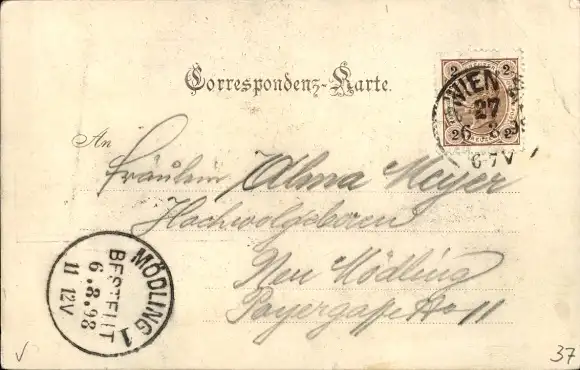 Correspondenz-Karte.
2 2
WIEN
27
6 8
2 2
6-7V
An
Fräulein Alma Meyer
Hochwolgeboren
Neu Mödling
Payergasse No 11
MÖDLING 1
BESTELLT
6.8.98
11 12V
37